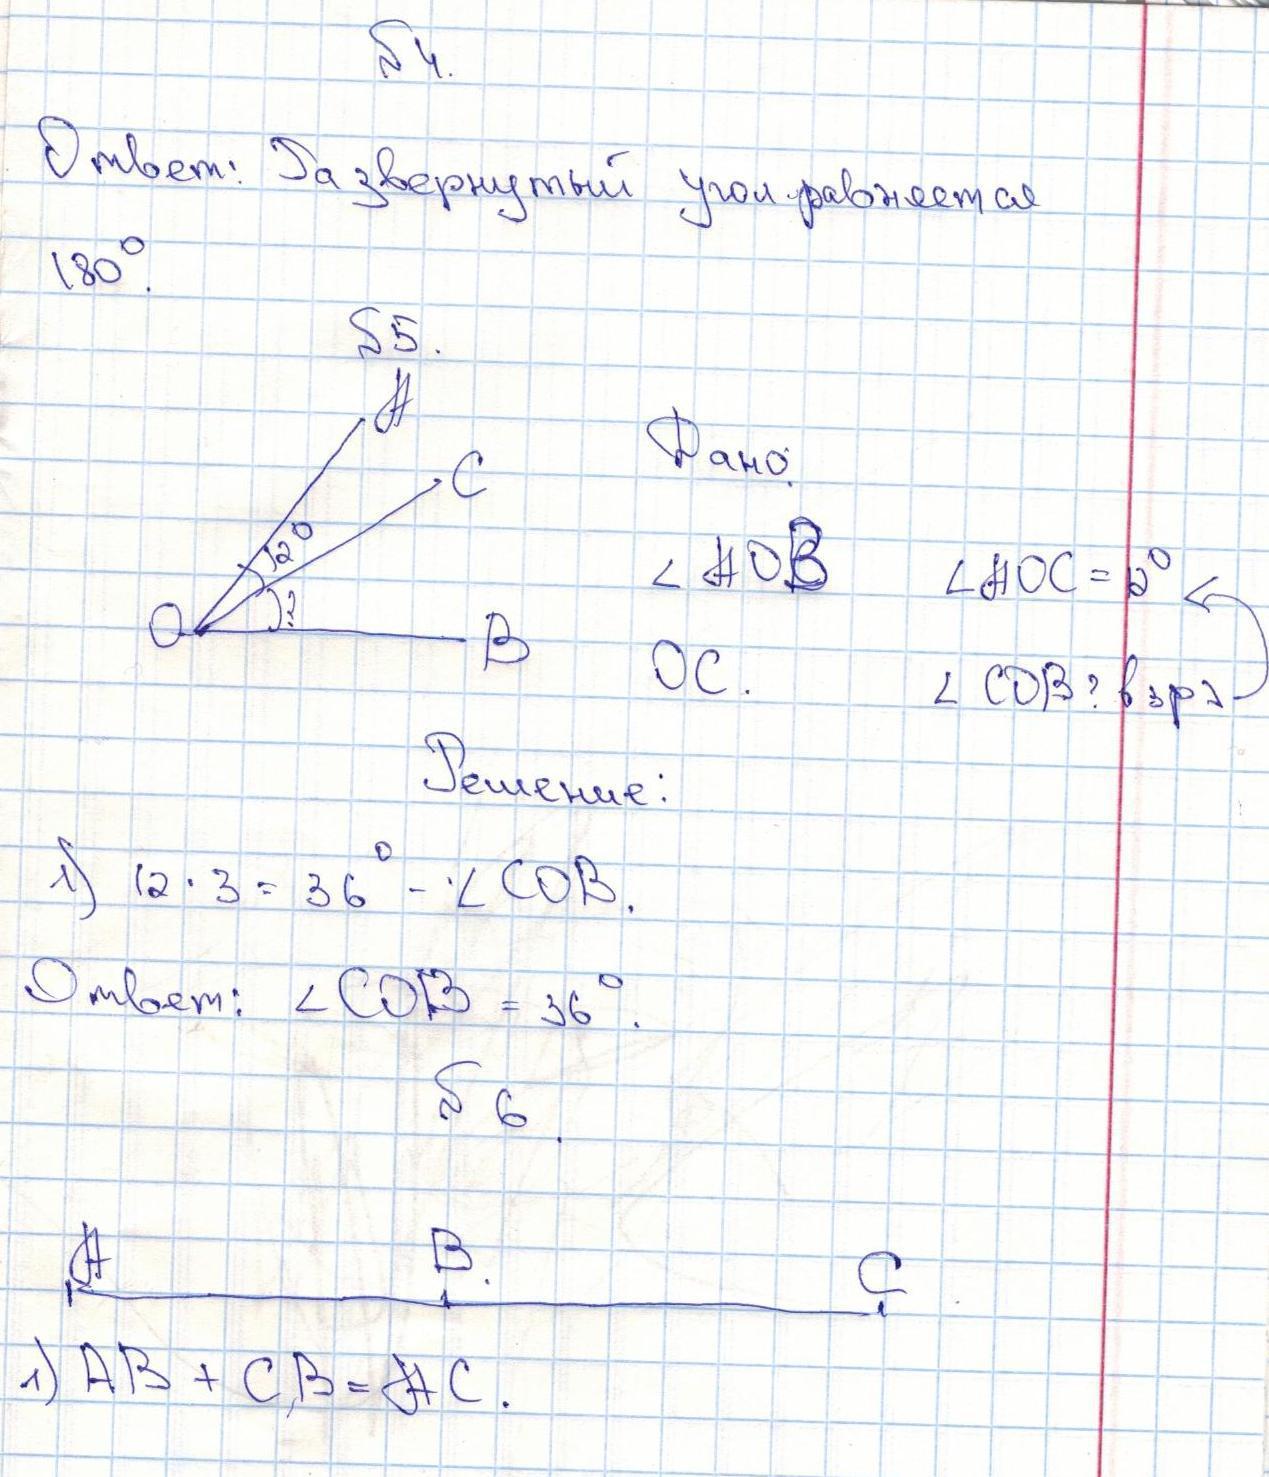 №4.
Ответ: Развернутый угол равняется
180°.
№5.
A
C
12°
?
O
B
Дано:
∠AOB ∠AOC = 12°
OC. ∠COB? в 3 р >
Решение:
1) 12 · 3 = 36° - ∠COB.
Ответ: ∠COB = 36°.
№6.
A B. C
1) AB + CB = AC.